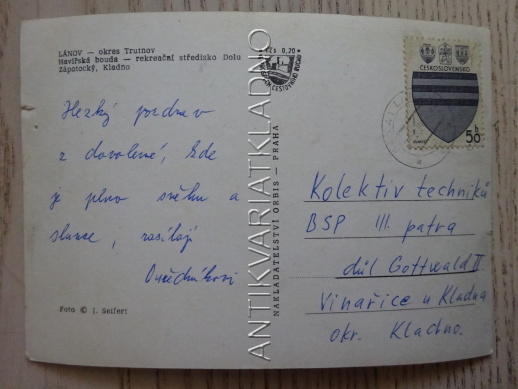 LÁNOV — okres Trutnov
Havířská bouda — rekreační středisko Dolu
Zápotocký, Kladno
Hezký pozdrav
z dovolené, kde
je plno sněhu a
slunce, zasílají
Foto © J. Seifert
Kčs 0,20
ANTIKVARIATKLADNO
NAKLADATELSTVÍ ORBIS — PRAHA
ČESKOSLOVENSKO
50 h
Kolektiv techniků
BSP III. patra
důl Gottwald II
Vinařice u Kladna
okr. Kladno.